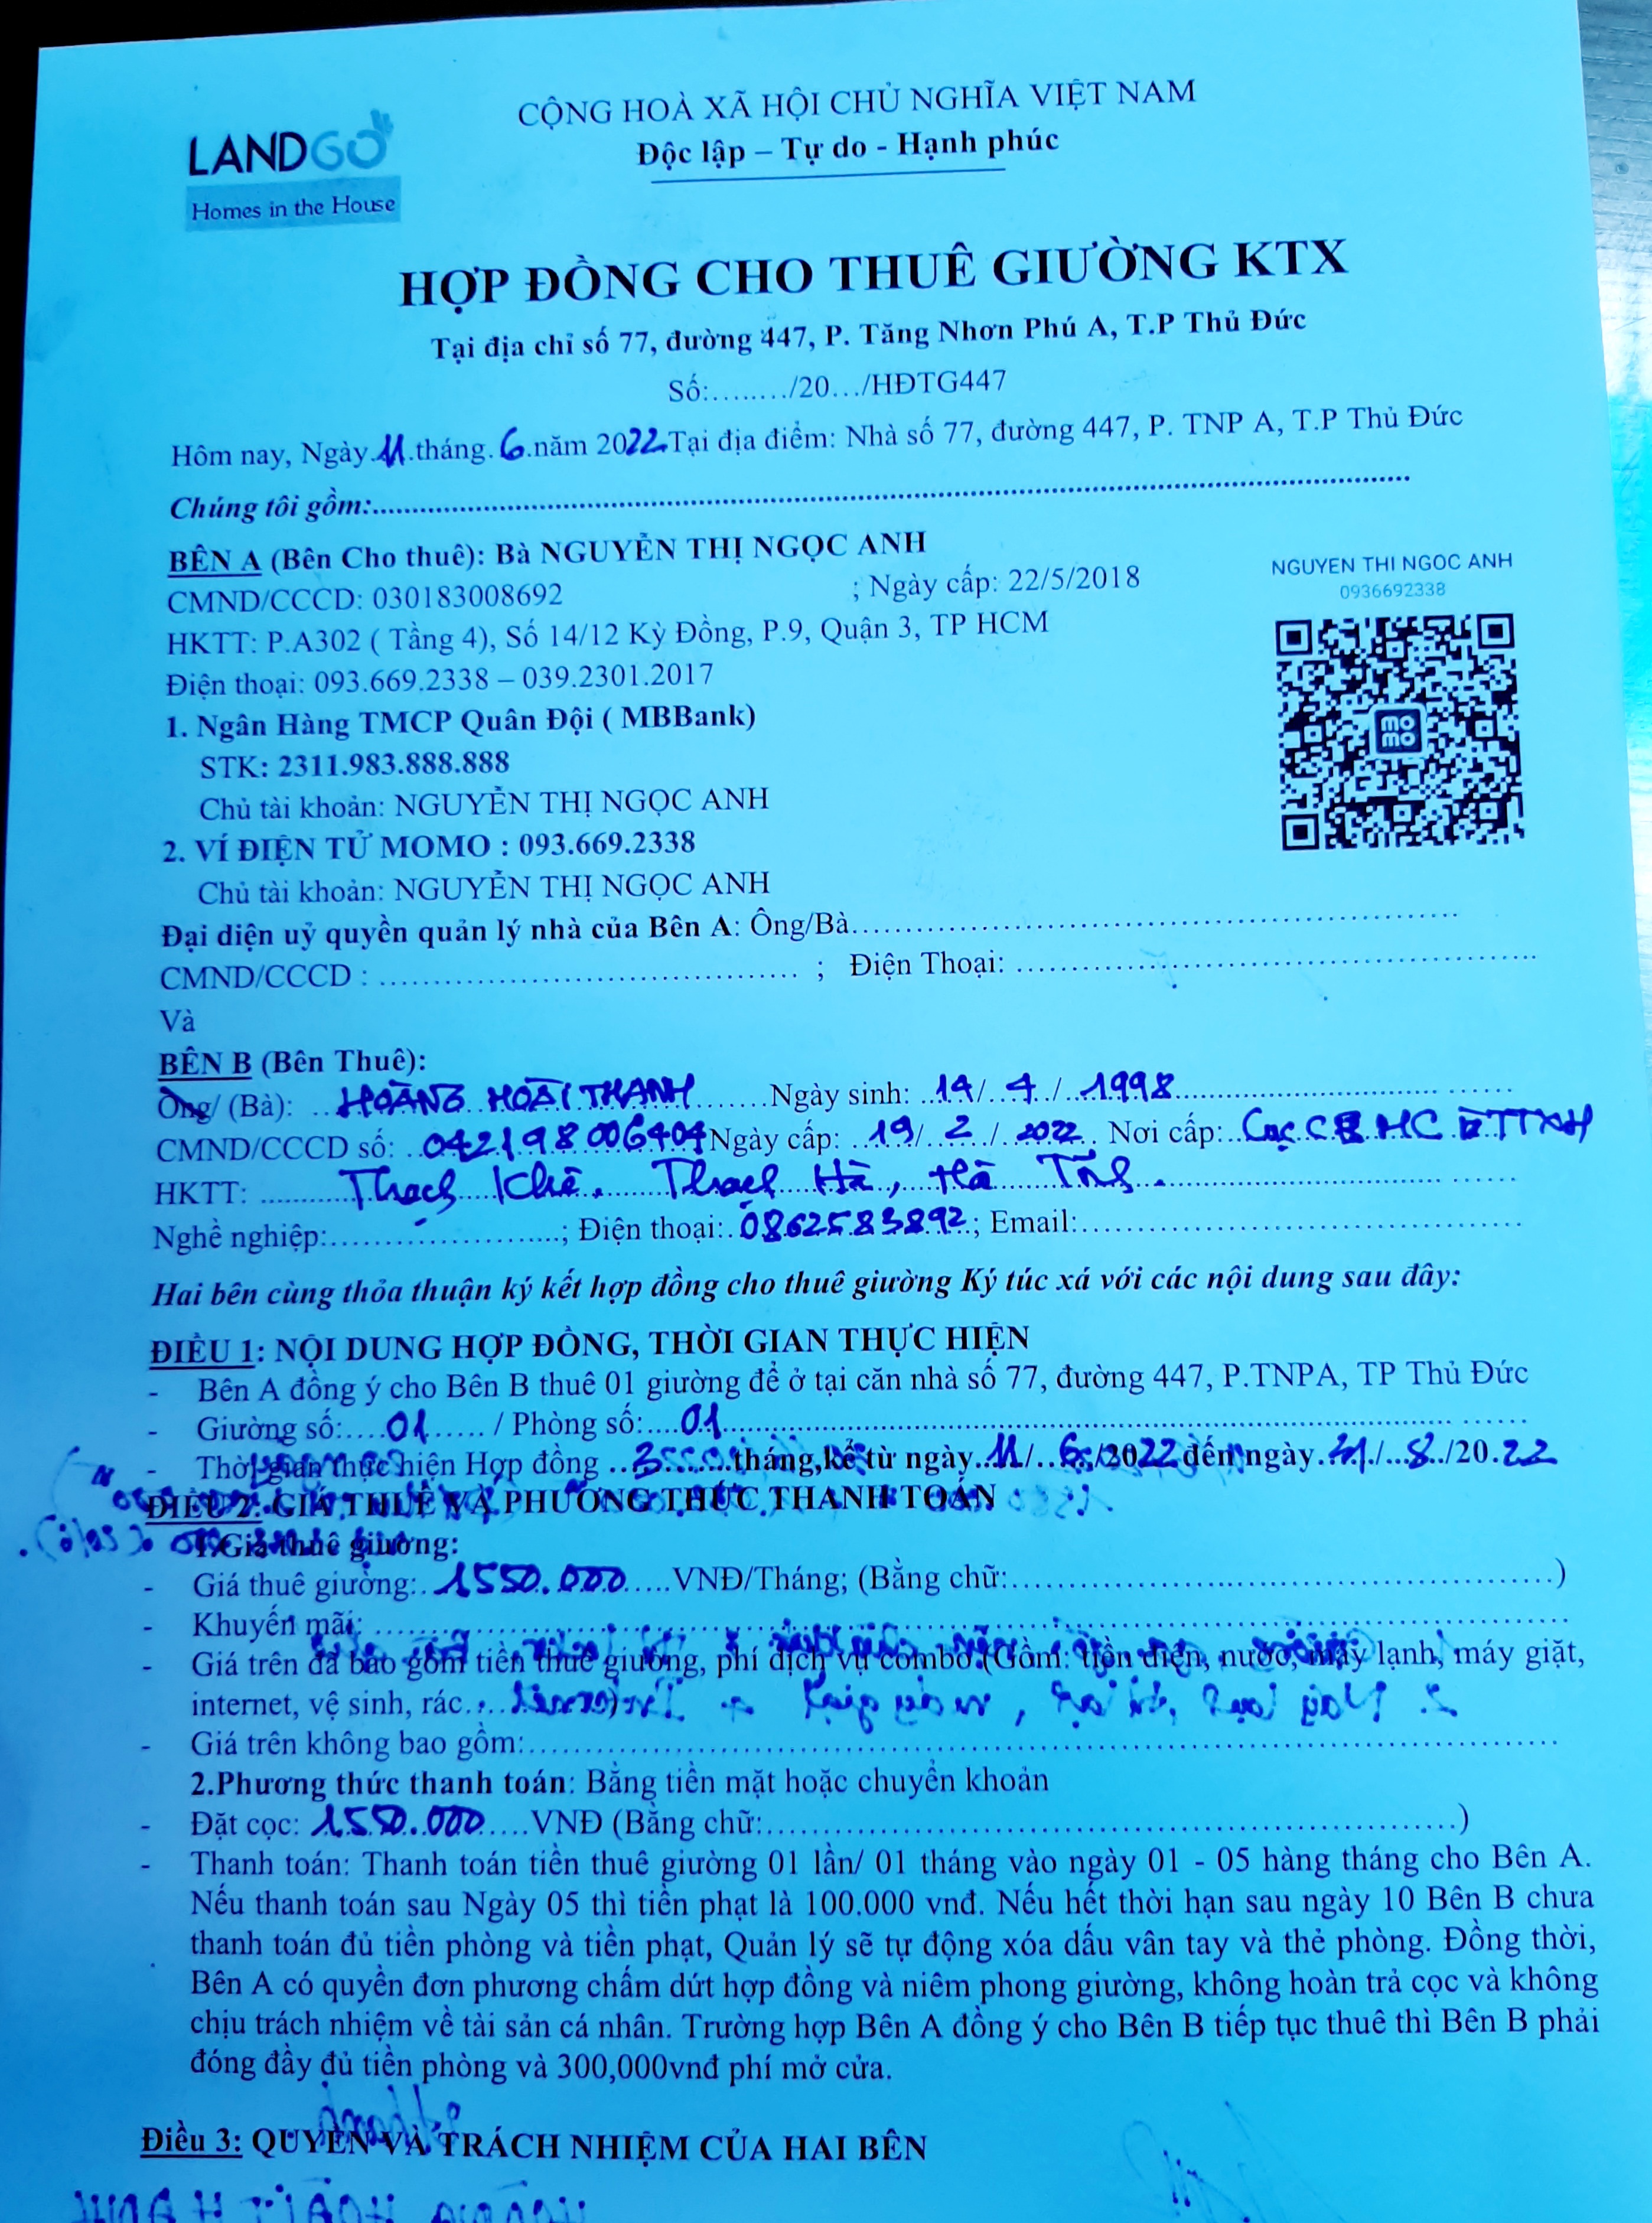 LANDGO
Homes in the House
CỘNG HOÀ XÃ HỘI CHỦ NGHĨA VIỆT NAM
Độc lập – Tự do - Hạnh phúc
HỢP ĐỒNG CHO THUÊ GIƯỜNG KTX
Tại địa chỉ số 77, đường 447, P. Tăng Nhơn Phú A, T.P Thủ Đức
Số:......../20.../HĐTG447
Hôm nay, Ngày 11 tháng 6 năm 2022 Tại địa điểm: Nhà số 77, đường 447, P. TNP A, T.P Thủ Đức
Chúng tôi gồm:
BÊN A (Bên Cho thuê): Bà NGUYỄN THỊ NGỌC ANH
CMND/CCCD: 030183008692 ; Ngày cấp: 22/5/2018
HKTT: P.A302 ( Tầng 4), Số 14/12 Kỳ Đồng, P.9, Quận 3, TP HCM
Điện thoại: 093.669.2338 – 039.2301.2017
NGUYEN THI NGOC ANH
0936692338
momo
1. Ngân Hàng TMCP Quân Đội ( MBBank)
STK: 2311.983.888.888
Chủ tài khoản: NGUYỄN THỊ NGỌC ANH
2. VÍ ĐIỆN TỬ MOMO : 093.669.2338
Chủ tài khoản: NGUYỄN THỊ NGỌC ANH
Đại diện uỷ quyền quản lý nhà của Bên A: Ông/Bà
CMND/CCCD : ; Điện Thoại:
Và
BÊN B (Bên Thuê):
Ông/ (Bà): HOÀNG HOÀI THANH Ngày sinh: 14/ 4 / 1998
CMND/CCCD số: 042198006404 Ngày cấp: 19/ 2 / 2022 Nơi cấp: Cục HC TTXH
HKTT: Thạch Khê, Thạch Hà, Hà Tĩnh.
Nghề nghiệp: ; Điện thoại: 0862583892; Email:
Hai bên cùng thỏa thuận ký kết hợp đồng cho thuê giường Ký túc xá với các nội dung sau đây:
ĐIỀU 1: NỘI DUNG HỢP ĐỒNG, THỜI GIAN THỰC HIỆN
- Bên A đồng ý cho Bên B thuê 01 giường để ở tại căn nhà số 77, đường 447, P.TNPA, TP Thủ Đức
- Giường số: 01 / Phòng số: 01
- Thời gian thực hiện Hợp đồng 3 tháng,kể từ ngày 11/ 6 /2022 đến ngày 31/ 8 /2022
ĐIỀU 2: GIÁ THUÊ VÀ PHƯƠNG THỨC THANH TOÁN
1.Giá thuê giường:
- Giá thuê giường: 1550.000 VNĐ/Tháng; (Bằng chữ: )
- Khuyến mãi:
- Giá trên đã bao gồm tiền thuê giường, phí dịch vụ combo (Gồm: tiền điện, nước, máy lạnh, máy giặt,
internet, vệ sinh, rác
- Giá trên không bao gồm:
2.Phương thức thanh toán: Bằng tiền mặt hoặc chuyển khoản
- Đặt cọc: 1550.000 VNĐ (Bằng chữ: )
- Thanh toán: Thanh toán tiền thuê giường 01 lần/ 01 tháng vào ngày 01 - 05 hàng tháng cho Bên A.
Nếu thanh toán sau Ngày 05 thì tiền phạt là 100.000 vnđ. Nếu hết thời hạn sau ngày 10 Bên B chưa
thanh toán đủ tiền phòng và tiền phạt, Quản lý sẽ tự động xóa dấu vân tay và thẻ phòng. Đồng thời,
Bên A có quyền đơn phương chấm dứt hợp đồng và niêm phong giường, không hoàn trả cọc và không
chịu trách nhiệm về tài sản cá nhân. Trường hợp Bên A đồng ý cho Bên B tiếp tục thuê thì Bên B phải
đóng đầy đủ tiền phòng và 300,000vnđ phí mở cửa.
Điều 3: QUYỀN VÀ TRÁCH NHIỆM CỦA HAI BÊN